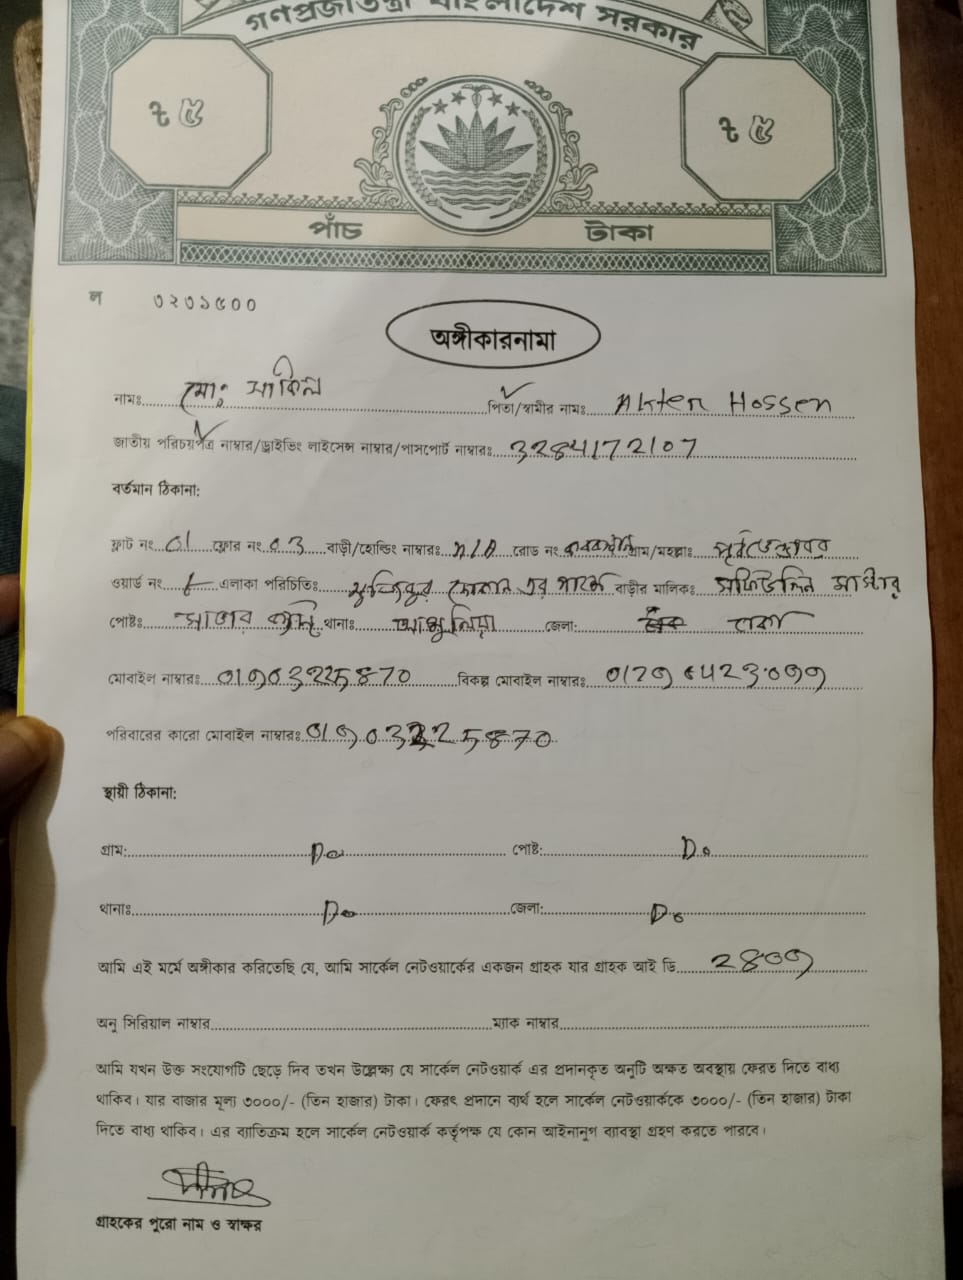 গণপ্রজাতন্ত্রী বাংলাদেশ সরকার
৳ ৫ ৳ ৫
পাঁচ টাকা
ল ৩২৩১৫০০
অঙ্গীকারনামা
নামঃ মো: সাকিল পিতা/স্বামীর নামঃ Akter Hossen
জাতীয় পরিচয়পত্র নাম্বার/ড্রাইভিং লাইসেন্স নাম্বার/পাসপোর্ট নাম্বারঃ 3284172107
বর্তমান ঠিকানা:
ফ্লাট নং 01 ফ্লোর নং 03 বাড়ী/হোল্ডিং নাম্বারঃ N/A রোড নং গ্রাম/মহল্লাঃ
ওয়ার্ড নং এলাকা পরিচিতিঃ দোকান এর পাশে বাড়ীর মালিকঃ
পোষ্টঃ সাভার থানাঃ আশুলিয়া জেলা: ঢাকা
মোবাইল নাম্বারঃ বিকল্প মোবাইল নাম্বারঃ
পরিবারের কারো মোবাইল নাম্বারঃ
স্থায়ী ঠিকানা:
গ্রাম: Do পোষ্ট: Do
থানাঃ Do জেলা: Do
আমি এই মর্মে অঙ্গীকার করিতেছি যে, আমি সার্কেল নেটওয়ার্কের একজন গ্রাহক যার গ্রাহক আই ডি
অনু সিরিয়াল নাম্বার ম্যাক নাম্বার
আমি যখন উক্ত সংযোগটি ছেড়ে দিব তখন উল্লেক্ষ্য যে সার্কেল নেটওয়ার্ক এর প্রদানকৃত অনুটি অক্ষত অবস্থায় ফেরত দিতে বাধ্য
থাকিব। যার বাজার মূল্য ৩০০০/- (তিন হাজার) টাকা। ফেরৎ প্রদানে ব্যর্থ হলে সার্কেল নেটওয়ার্ককে ৩০০০/- (তিন হাজার) টাকা
দিতে বাধ্য থাকিব। এর ব্যতিক্রম হলে সার্কেল নেটওয়ার্ক কর্তৃপক্ষ যে কোন আইনানুগ ব্যবস্থা গ্রহণ করতে পারবে।
গ্রাহকের পুরো নাম ও স্বাক্ষর